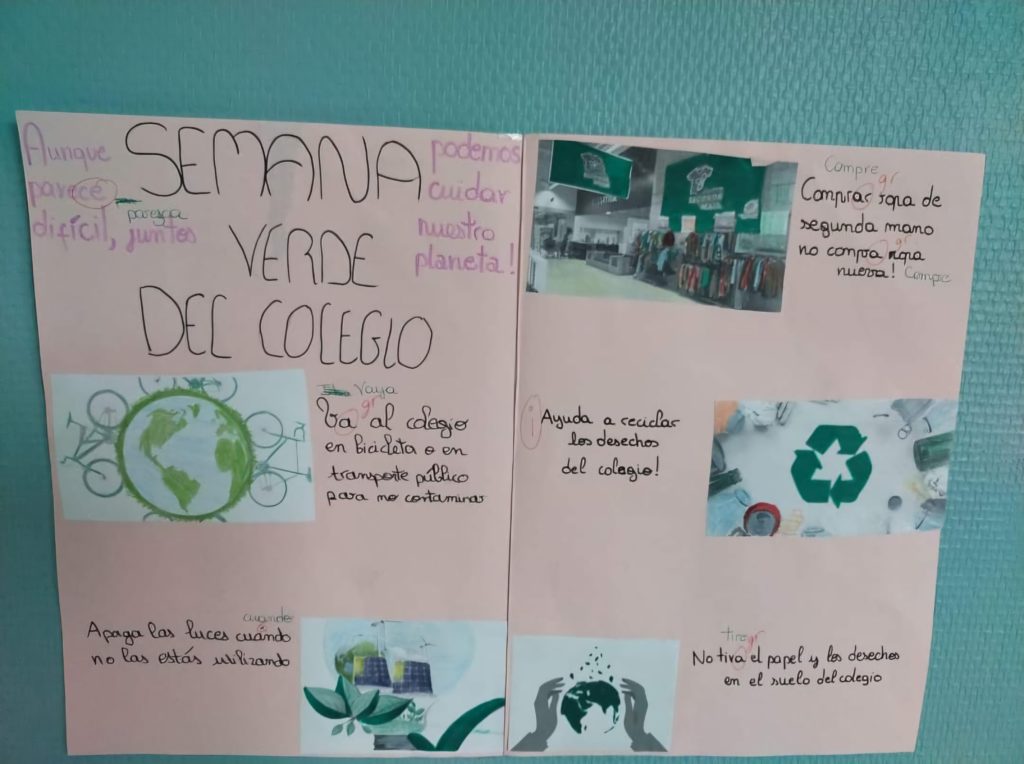 Aunque
parecé
difícil, juntos
parezca
SEMANA
VERDE
DEL COLEGIO
podemos
cuidar
nuestro
planeta!
Vaya
gr
Va al colegio
en bicicleta o en
transporte público
para no contaminar
cuando
Apaga las luces cuándo
no las estás utilizando
Compre
gr
Compras ropa de
segunda mano
gr
no compra ropa
nueva! Compre
¡Ayuda a reciclar
los desechos
del colegio!
tire gr
No tira el papel y los desechos
en el suelo del colegio